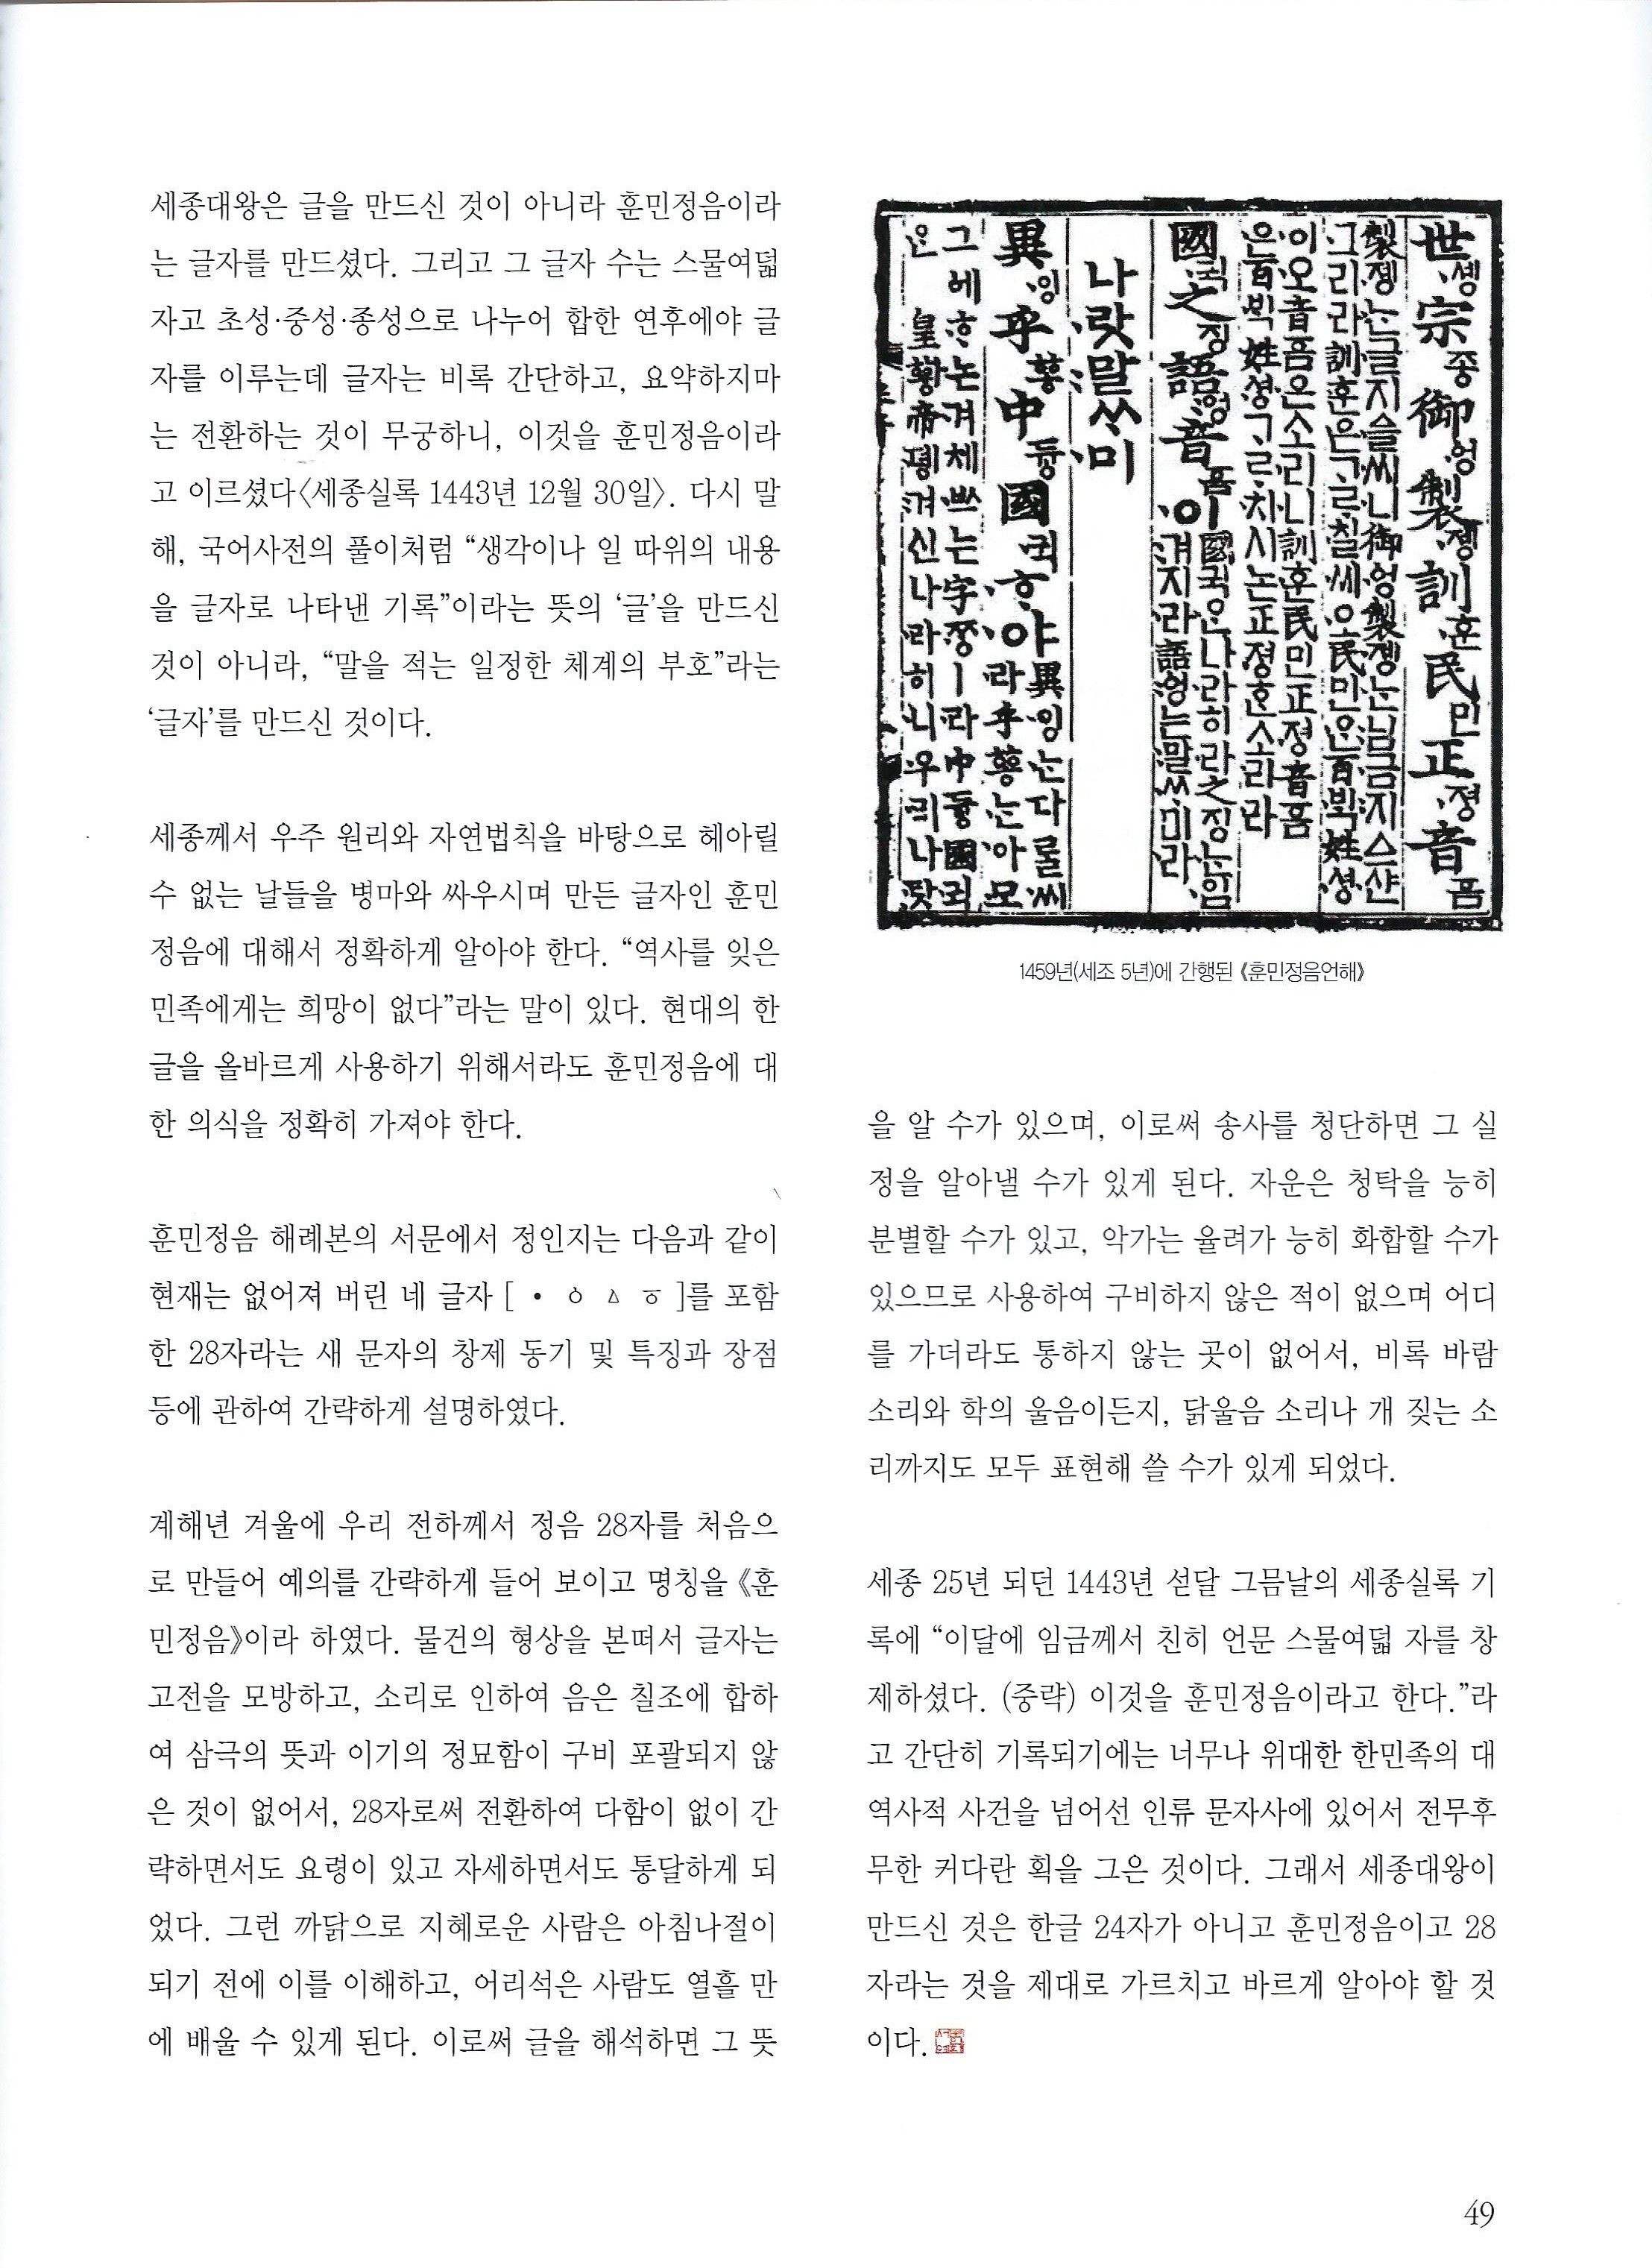 세종대왕은 글을 만드신 것이 아니라 훈민정음이라
는 글자를 만드셨다. 그리고 그 글자 수는 스물여덟
자고 초성·중성·종성으로 나누어 합한 연후에야 글
자를 이루는데 글자는 비록 간단하고, 요약하지마
는 전환하는 것이 무궁하니, 이것을 훈민정음이라
고 이르셨다〈세종실록 1443년 12월 30일〉. 다시 말
해, 국어사전의 풀이처럼 “생각이나 일 따위의 내용
을 글자로 나타낸 기록”이라는 뜻의 ‘글’을 만드신
것이 아니라, “말을 적는 일정한 체계의 부호”라는
‘글자’를 만드신 것이다.
세종께서 우주 원리와 자연법칙을 바탕으로 헤아릴
수 없는 날들을 병마와 싸우시며 만든 글자인 훈민
정음에 대해서 정확하게 알아야 한다. “역사를 잊은
민족에게는 희망이 없다”라는 말이 있다. 현대의 한
글을 올바르게 사용하기 위해서라도 훈민정음에 대
한 의식을 정확히 가져야 한다.
훈민정음 해례본의 서문에서 정인지는 다음과 같이
현재는 없어져 버린 네 글자 [ • ㆁ ㅿ ㆆ ]를 포함
한 28자라는 새 문자의 창제 동기 및 특징과 장점
등에 관하여 간략하게 설명하였다.
계해년 겨울에 우리 전하께서 정음 28자를 처음으
로 만들어 예의를 간략하게 들어 보이고 명칭을 《훈
민정음》이라 하였다. 물건의 형상을 본떠서 글자는
고전을 모방하고, 소리로 인하여 음은 칠조에 합하
여 삼극의 뜻과 이기의 정묘함이 구비 포괄되지 않
은 것이 없어서, 28자로써 전환하여 다함이 없이 간
략하면서도 요령이 있고 자세하면서도 통달하게 되
었다. 그런 까닭으로 지혜로운 사람은 아침나절이
되기 전에 이를 이해하고, 어리석은 사람도 열흘 만
에 배울 수 있게 된다. 이로써 글을 해석하면 그 뜻
世솅宗종御엉製졩訓훈民민正졍音흠
나랏말ᄊᆞ미
1459년(세조 5년)에 간행된 《훈민정음언해》
을 알 수가 있으며, 이로써 송사를 청단하면 그 실
정을 알아낼 수가 있게 된다. 자운은 청탁을 능히
분별할 수가 있고, 악가는 율려가 능히 화합할 수가
있으므로 사용하여 구비하지 않은 적이 없으며 어디
를 가더라도 통하지 않는 곳이 없어서, 비록 바람
소리와 학의 울음이든지, 닭울음 소리나 개 짖는 소
리까지도 모두 표현해 쓸 수가 있게 되었다.
세종 25년 되던 1443년 섣달 그믐날의 세종실록 기
록에 “이달에 임금께서 친히 언문 스물여덟 자를 창
제하셨다. (중략) 이것을 훈민정음이라고 한다.”라
고 간단히 기록되기에는 너무나 위대한 한민족의 대
역사적 사건을 넘어선 인류 문자사에 있어서 전무후
무한 커다란 획을 그은 것이다. 그래서 세종대왕이
만드신 것은 한글 24자가 아니고 훈민정음이고 28
자라는 것을 제대로 가르치고 바르게 알아야 할 것
이다.
49